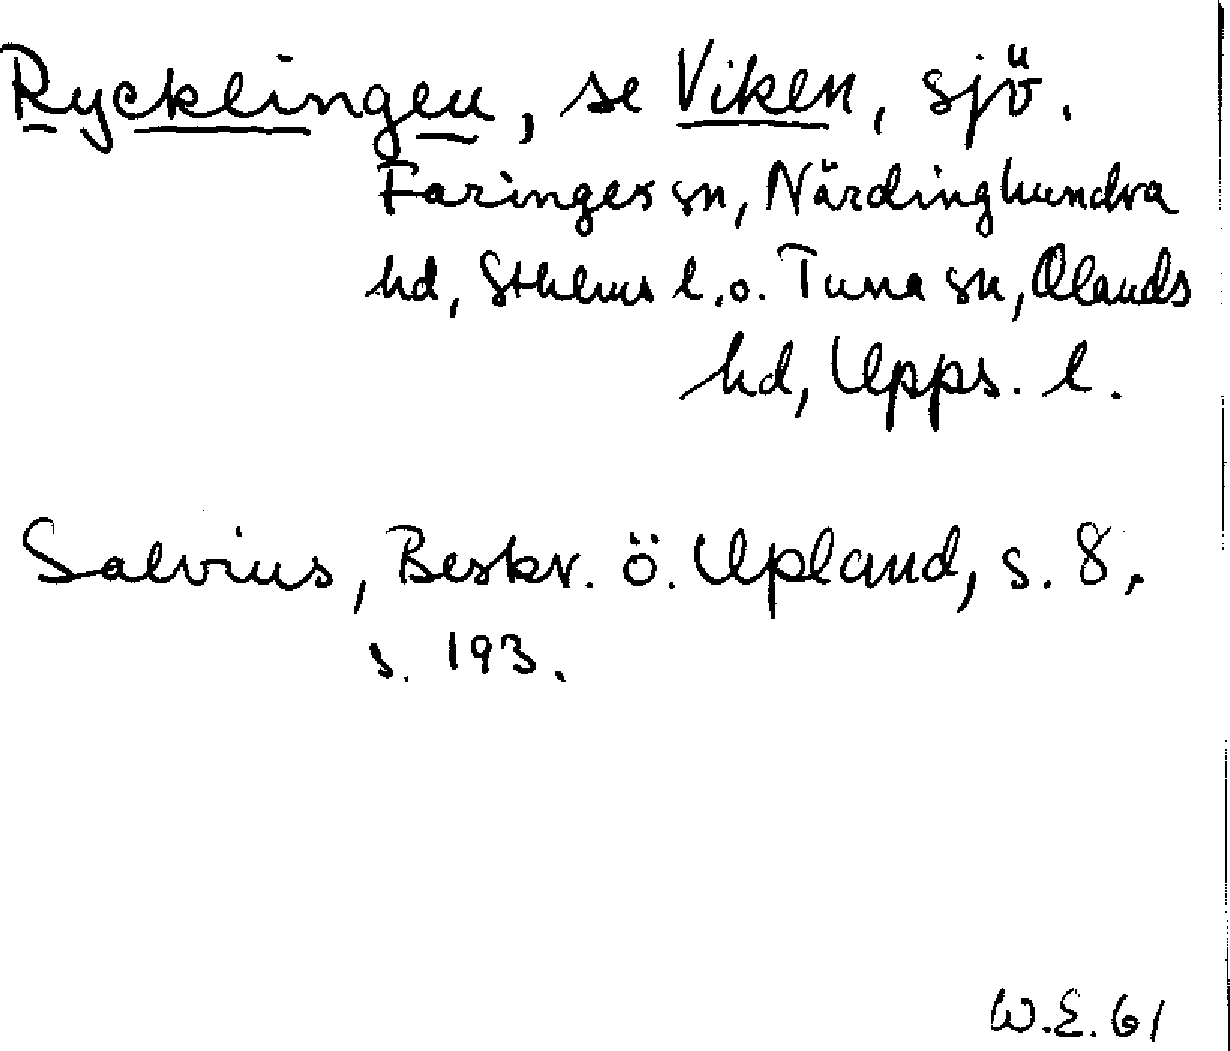 Rycklingen, se Viken, sjö.
Faringes sn, Närdinghundra
hd, Sthlms l. o. Tuna sn, Olands
hd, Upps. l.
Salvius, Beskr. ö. Upland, s. 8,
s. 193.
W.E. 61